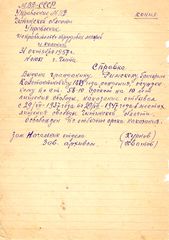 МВД-СССР
Управление МВД
Читинской области
Управление
исправительно-трудовых лагерей
и колоний
31 октября 1957 г.
г. Чита
копия
Справка
Выдана гражданину Римскому
Константиновичу 1889 года рождения, осужден
кому по ст. 58-10 на 10 лет
лишения свободы, наказание отбывал
с 29/VIII 1937 года по 1947 год в местах
лишения свободы Читинской области
освобожден по отбытии срока наказания.
зам. Начальник отдела
Зав. архивом